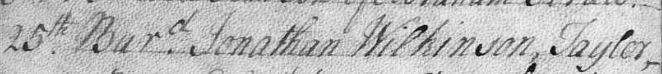 25th. Burd. Jonathan Wilkinson, Taylor,